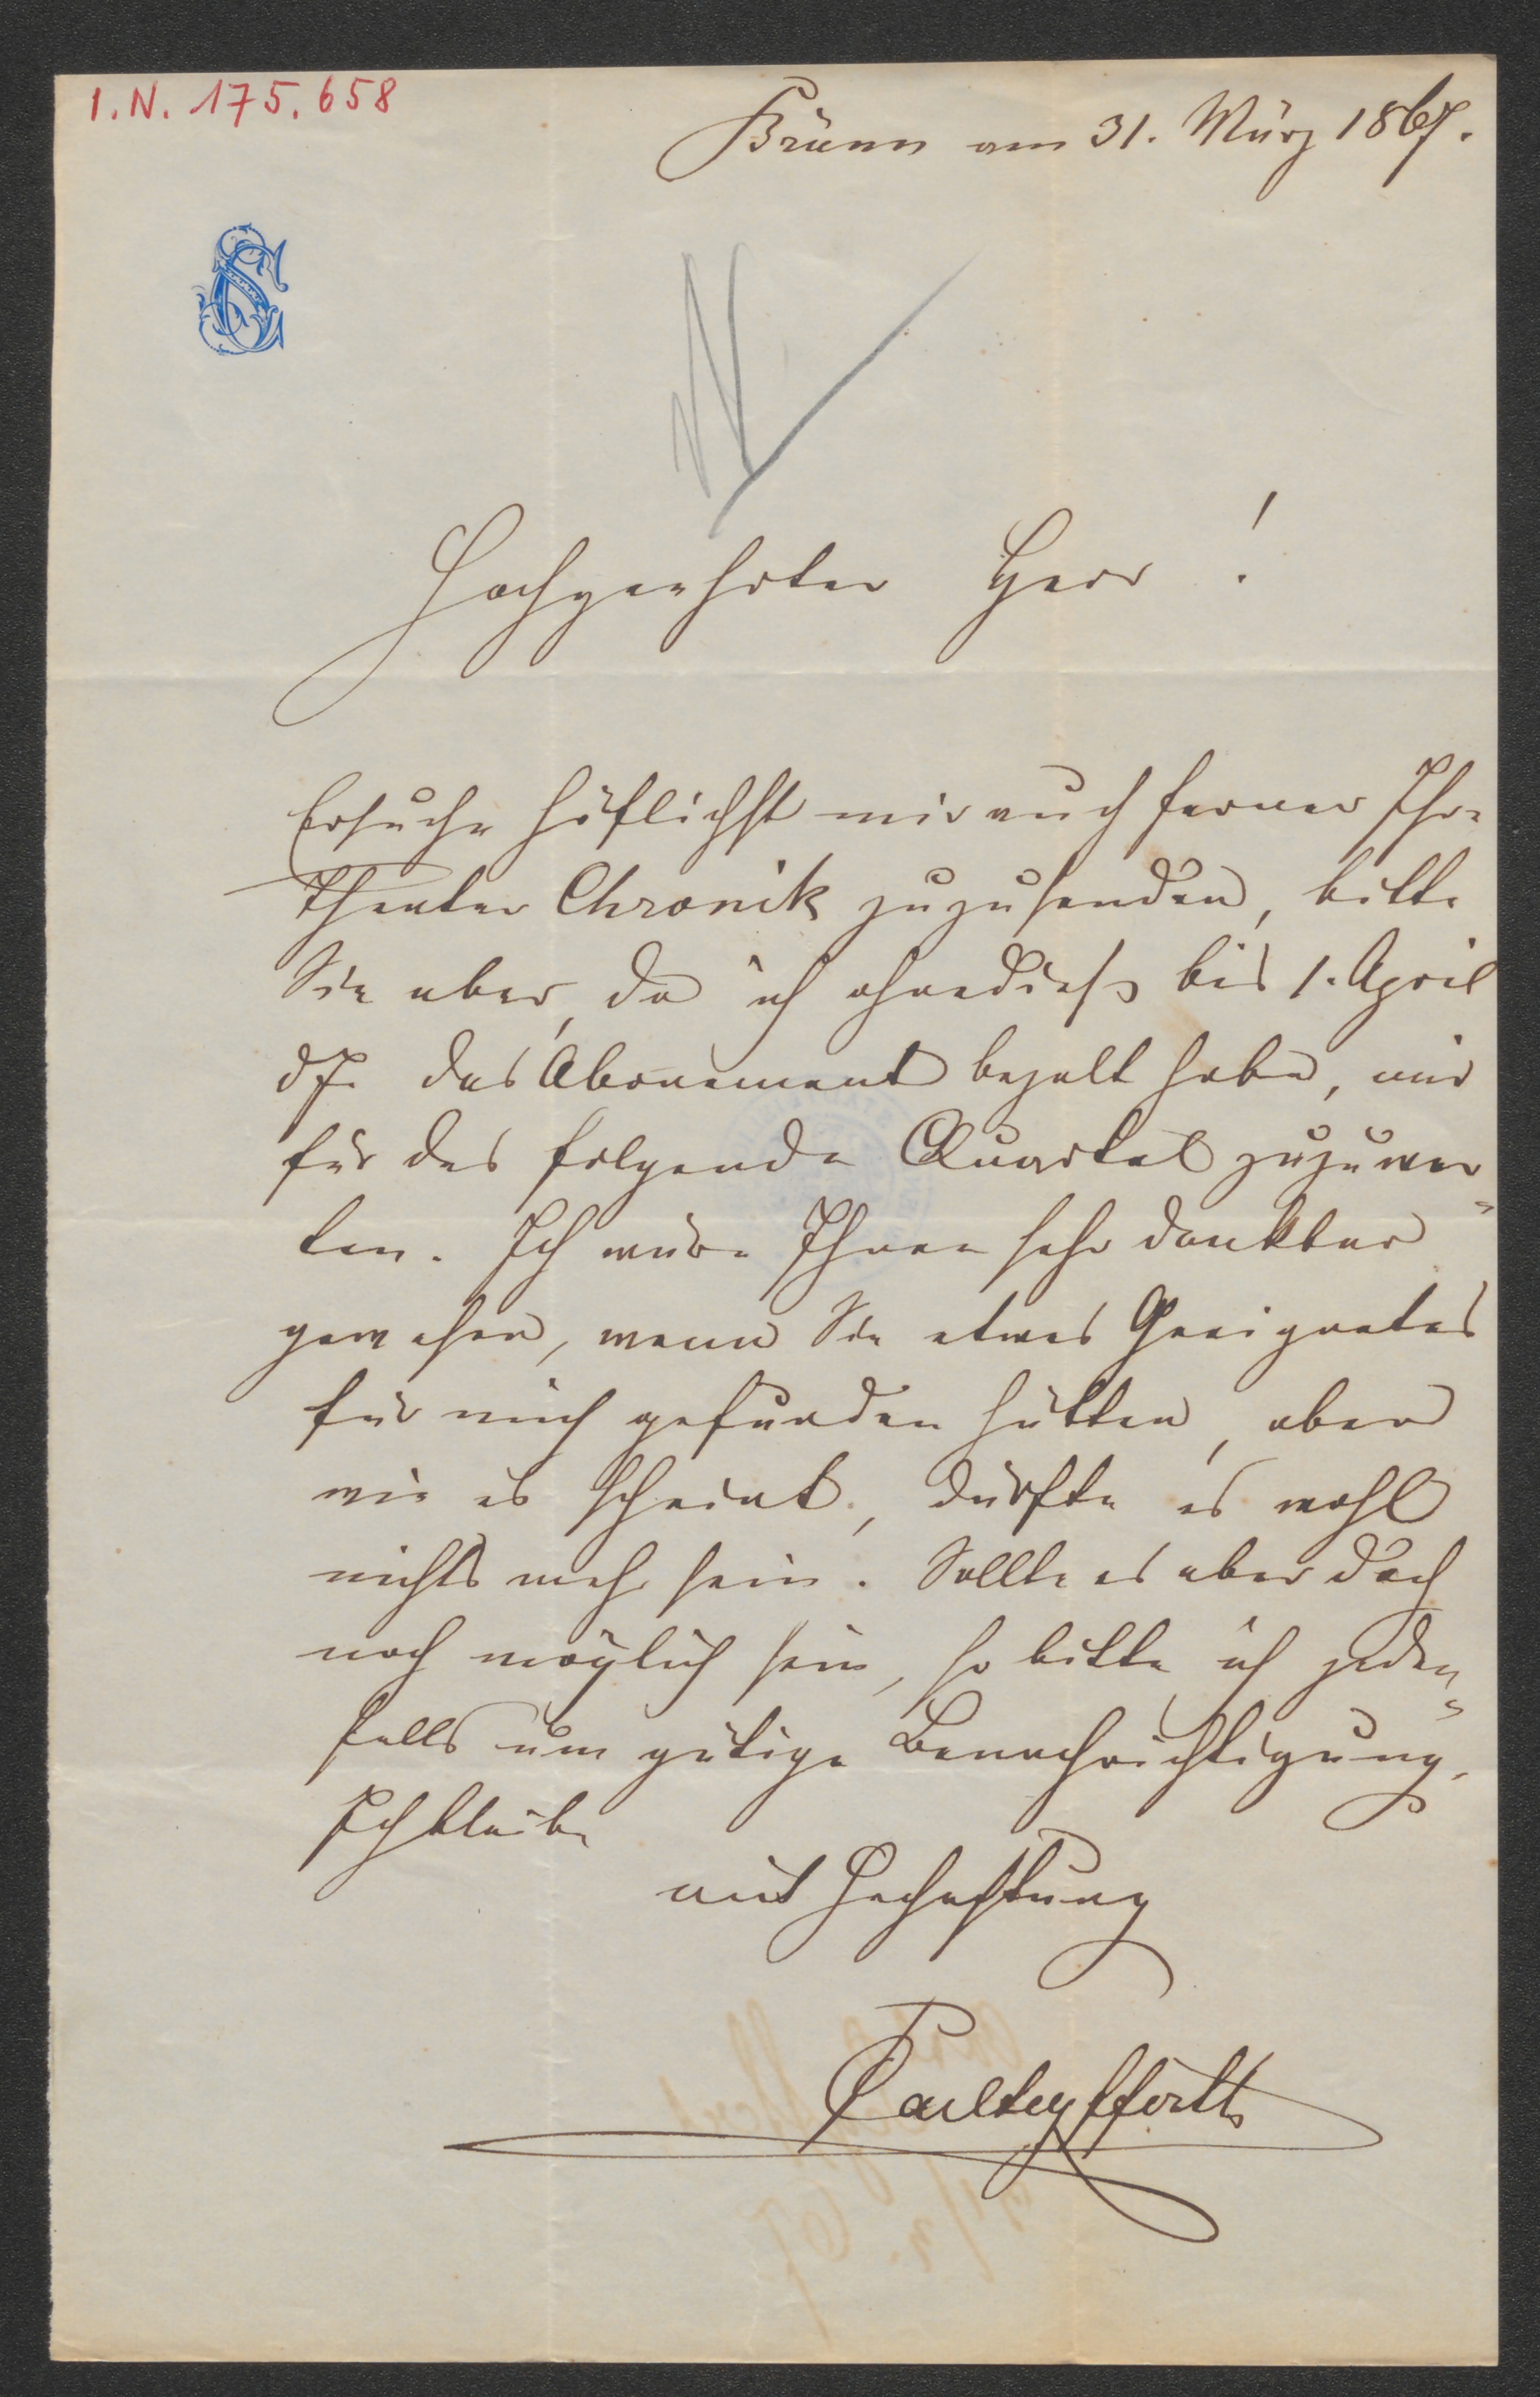 I.N. 175.658
Brünn am 31. März 1867.
Hochgeehrter Herr !
Ersuche höflichst mir auch ferner Ihr-
Theater Chronik zuzusenden, bitte
Sie aber, da ich ohnedieß bis 1. April
dJ. das Abonement bezalt habe, mir
für das folgende Quartal zuzuwar=
ten. Ich wäre Ihnen sehr dankbar
gewesen, wenn Sie etwas Geeignetes
für mich gefunden hätten, aber
wie es scheint, dürfte es wohl
nichts mehr sein. Sollte es aber doch
noch möglich sein, so bitte ich jeden=
falls um gütige Benachrichtigung.
Ich bleibe
mit Hochachtung
Carl